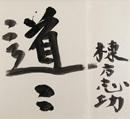 道
ミ
棟方志功